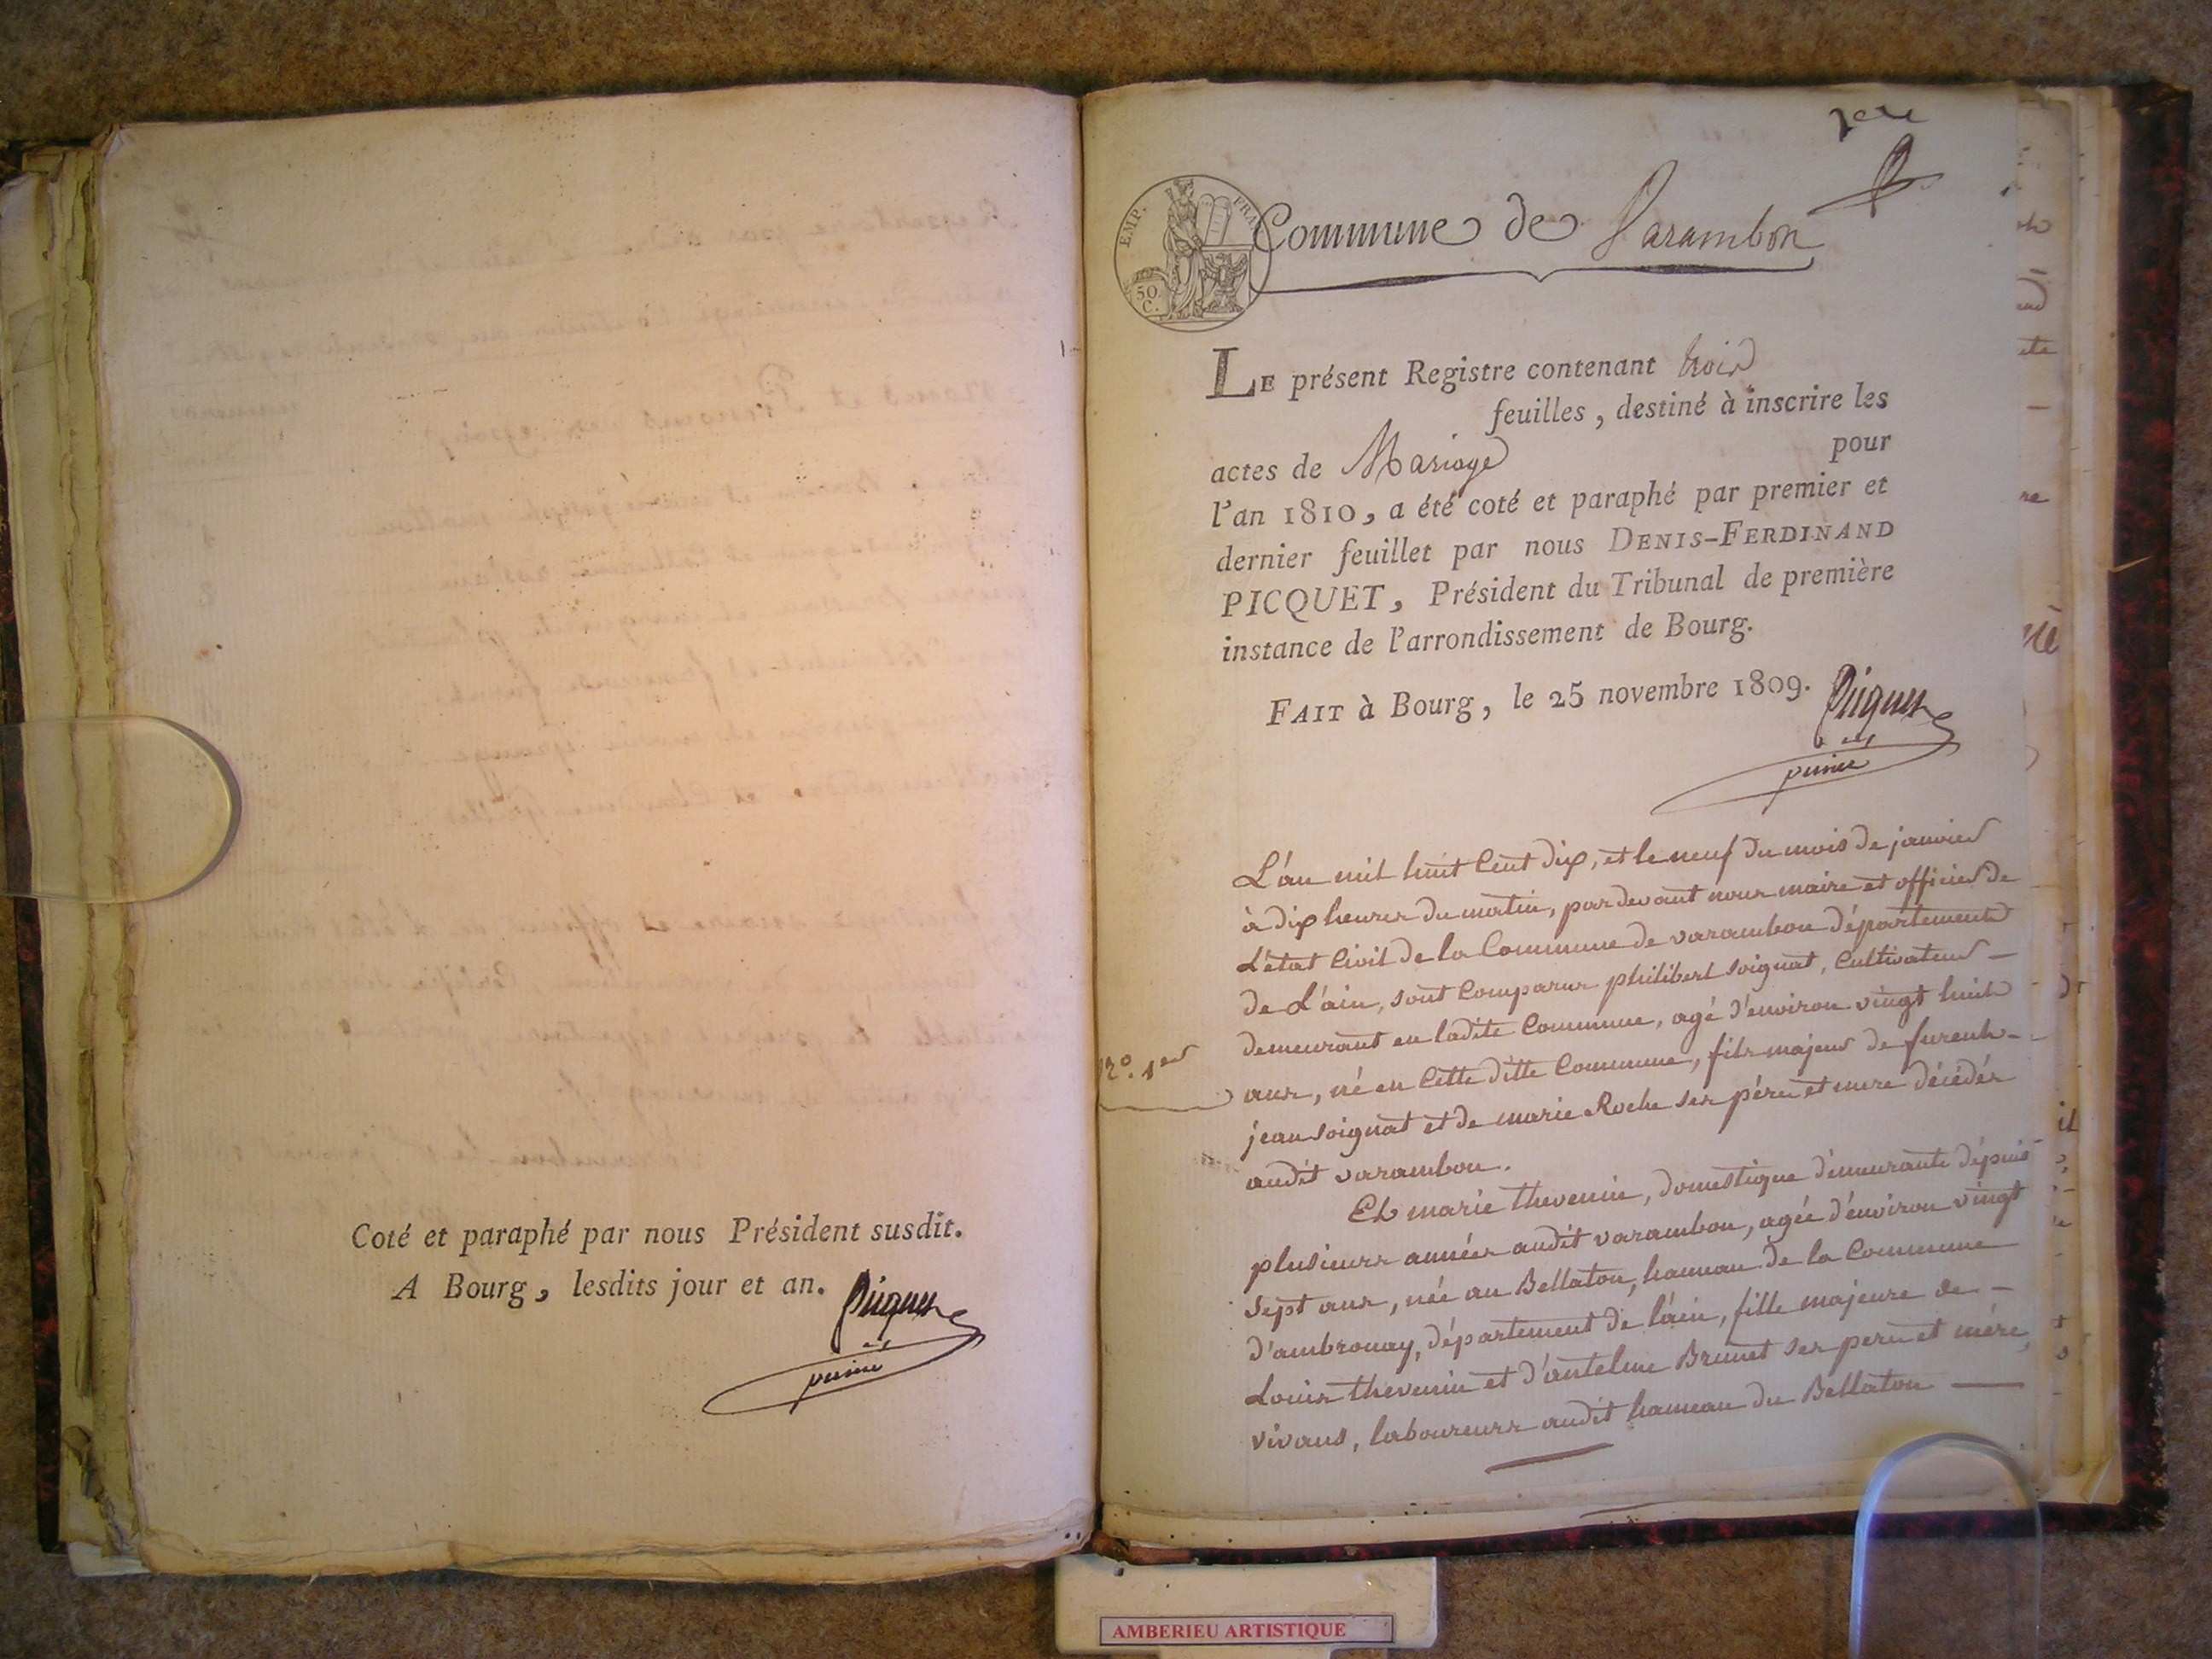 Coté et paraphé par nous Président susdit.
A Bourg, lesdits jour et an.
Picquet
1er
EMP. FRA
50
C.
Commune de Varambon
LE présent Registre contenant trois
feuilles, destiné à inscrire les
actes de Mariage pour
l'an 1810, a été coté et paraphé par premier et
dernier feuillet par nous DENIS-FERDINAND
PICQUET, Président du Tribunal de première
instance de l'arrondissement de Bourg.
FAIT à Bourg, le 25 novembre 1809.
Picquet
L'an mil huit Cent dix, et le neuf du mois de janvier
à dix heures du matin, pardevant nous maire et officier de
L'état Civil de la Commune de varambon département
de L'ain, sont Comparus philibert soignat, Cultivateur –
demeurant en ladite Commune, agé d'environ vingt huit
N°. 1er
ans, né en Cette ditte Commune, fils majeur de furent –
jean soignat et de marie Roche ses pére et mere décédés
audit varambon.
Et marie thevenin, domestique démeurante dépuis
plusieurs années audit varambon, agée d'environ vingt
sept ans, née au Bellaton, hameau de la Commune
d'ambronay, département de l'ain, fille majeure de –
Louis thevenin et d'antelme Brunet ses pere et mére,
vivans, laboureurs audit hameau du Bellaton —
AMBERIEU ARTISTIQUE